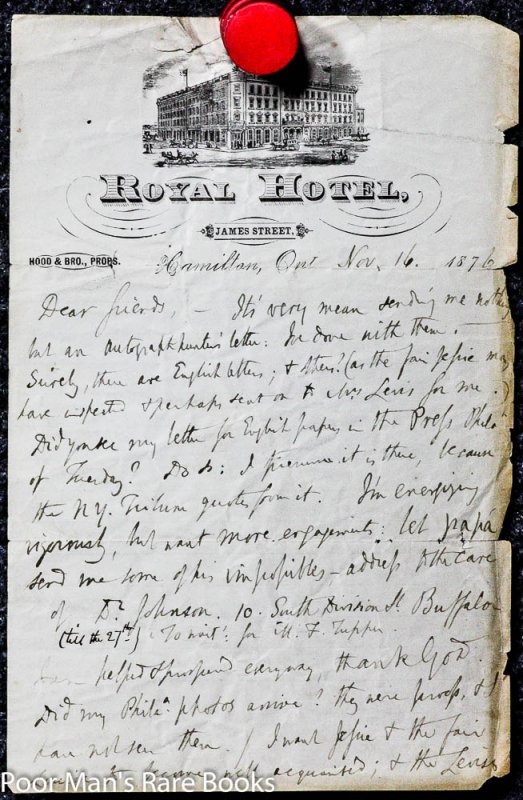 ROYAL HOTEL,
JAMES STREET.
HOOD & BRO., PROPS.
Hamilton, Ont Nov. 16. 1876
Dear friends, – It's very mean sending me nothing
but an autograph hunter's letter: I'm done with them. –
Surely, there are English letters; & others? (as the fair Jessie may
have inspected & perhaps sent on to Mrs Lewis for me.)
Did you see my letter for English papers in the Press Phila
of Tuesday? Do so: I presume it is there, because
the N.Y. Tribune quotes from it. I'm energizing
vigorously, but want more engagements: let papa
send me some of his impossibles – address to the care
of Dr Johnson. 10. South Division St. Buffalo
(till the 27th) To wait: for M. F. Tupper
helped & prospered everyway, thank God.
Did my Phila photos arrive? they were proofs, & I
have not seen them. I want Jessie & the fair
to become well acquainted; & the Lewis
Poor Man's Rare Books